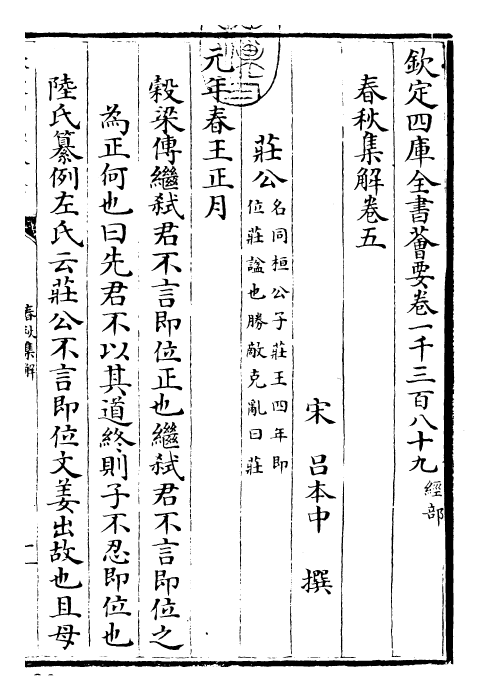 欽定四庫全書薈要卷一千三百八十九經部
春秋集解卷五
宋 呂本中 撰
莊公名同桓公子莊王四年即
位莊諡也勝敵克亂曰莊
元年春王正月
穀梁傳繼弑君不言即位正也繼弑君不言即位之
為正何也曰先君不以其道終則子不忍即位也
陸氏纂例左氏云莊公不言即位文姜出故也且母
春秋集解